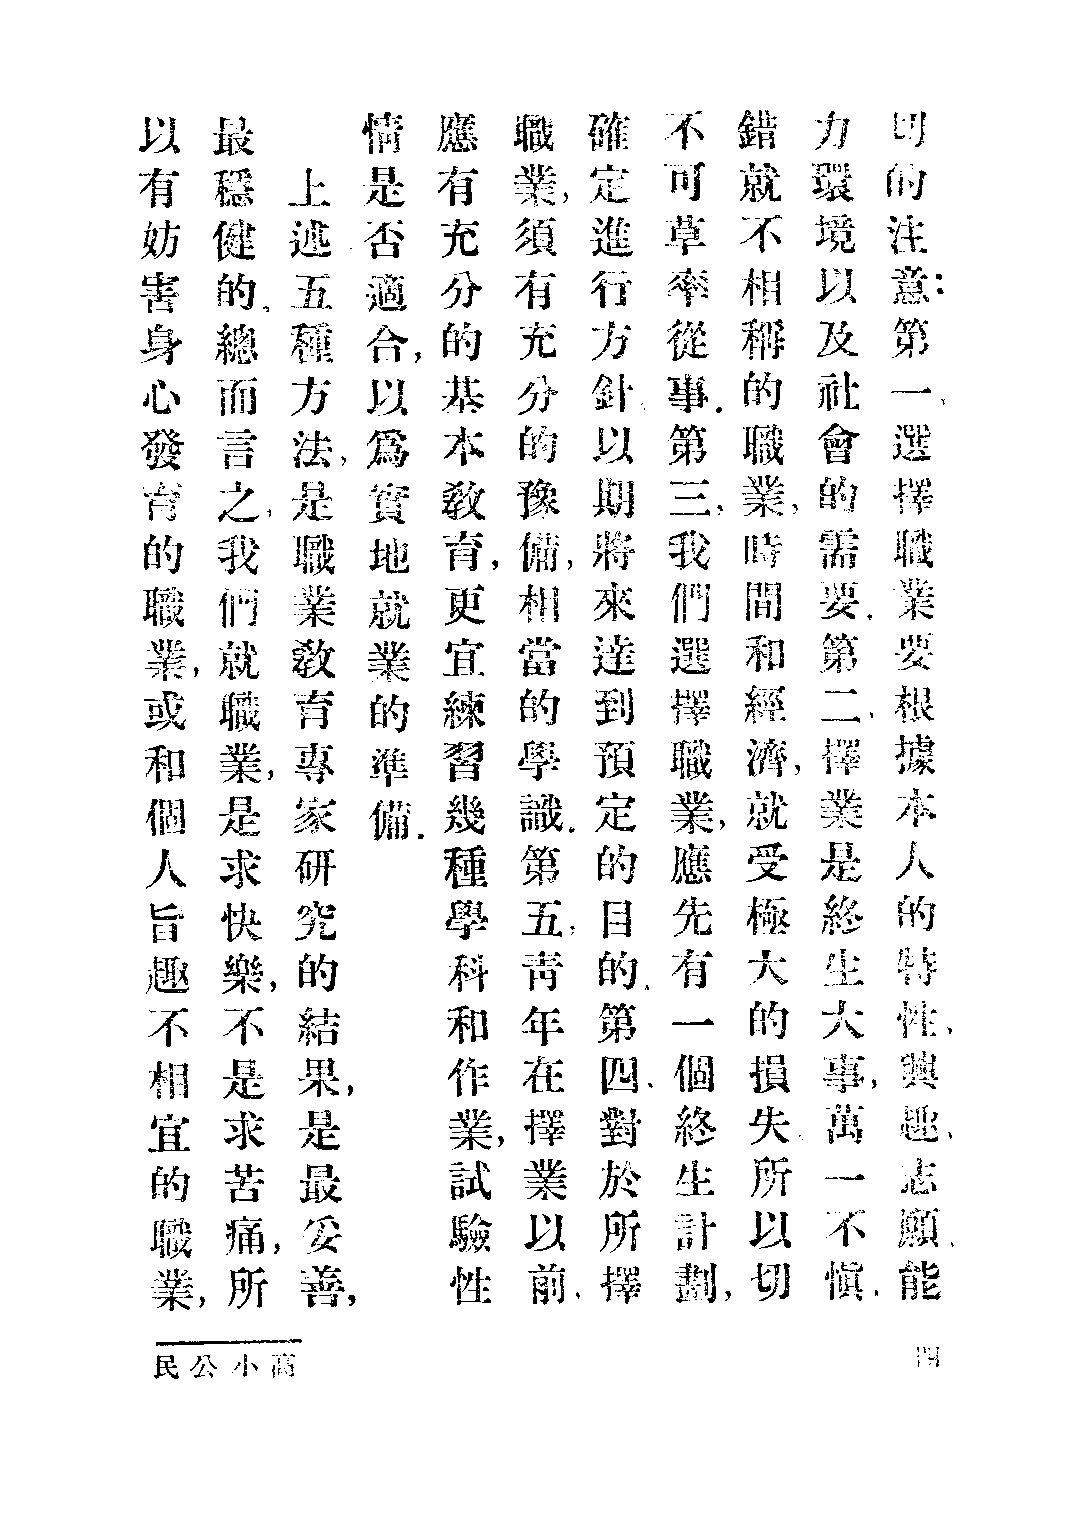 切的注意:第一、選擇職業要根據本人的特性、興趣、志願、能
力環境以及社會的需要.第二、擇業是終生大事,萬一不慎、
錯就不相稱的職業,時間和經濟,就受極大的損失、所以切
不可草率從事.第三,我們選擇職業,應先有一個終生計劃,
確定進行方針、以期將來達到預定的目的.第四、對於所擇
職業,須有充分的豫備,相當的學識.第五,青年在擇業以前、
應有充分的基本教育,更宜練習幾種學科和作業,試驗性
情是否適合,以爲實地就業的準備.
上述五種方法,是職業教育專家研究的結果,是最妥善,
最穩健的、總而言之,我們就職業,是求快樂,不是求苦痛,所
以有妨害身心發育的職業,或和個人旨趣不相宜的職業,
高小公民
四